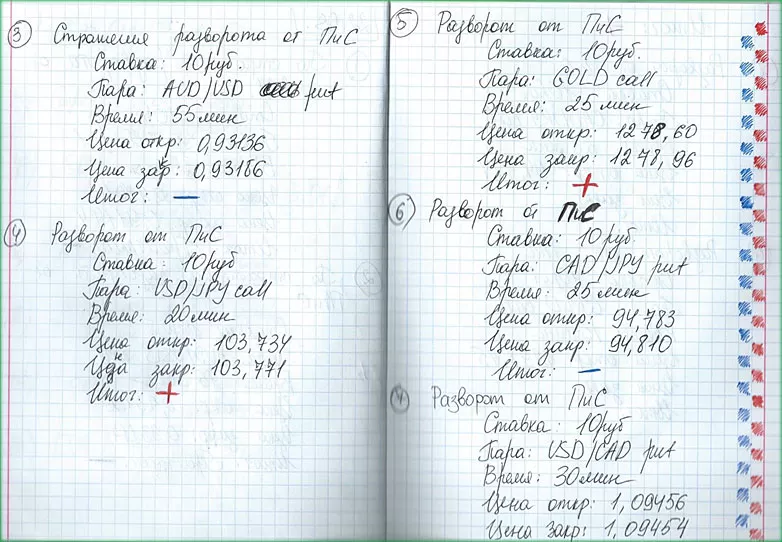 ③ Стратегия разворота от ПиС
Ставка: 10 руб.
Пара: AUD/USD put
Время: 55 мин
Цена откр: 0,93136
Цена закр: 0,93186
Итог: –
④ Разворот от ПиС
Ставка: 10 руб
Пара: USD/JPY call
Время: 20 мин
Цена откр: 103,734
Цена закр: 103,771
Итог: +
⑤ Разворот от ПиС
Ставка: 10 руб.
Пара: GOLD call
Время: 25 мин
Цена откр: 1278,60
Цена закр: 1278,96
Итог: +
⑥ Разворот от ПиС
Ставка: 10 руб.
Пара: CAD/JPY put
Время: 25 мин
Цена откр: 94,783
Цена закр: 94,810
Итог: –
Разворот от ПиС
Ставка: 10 руб
Пара: USD/CAD put
Время: 30 мин
Цена откр: 1,09456
Цена закр: 1,09454